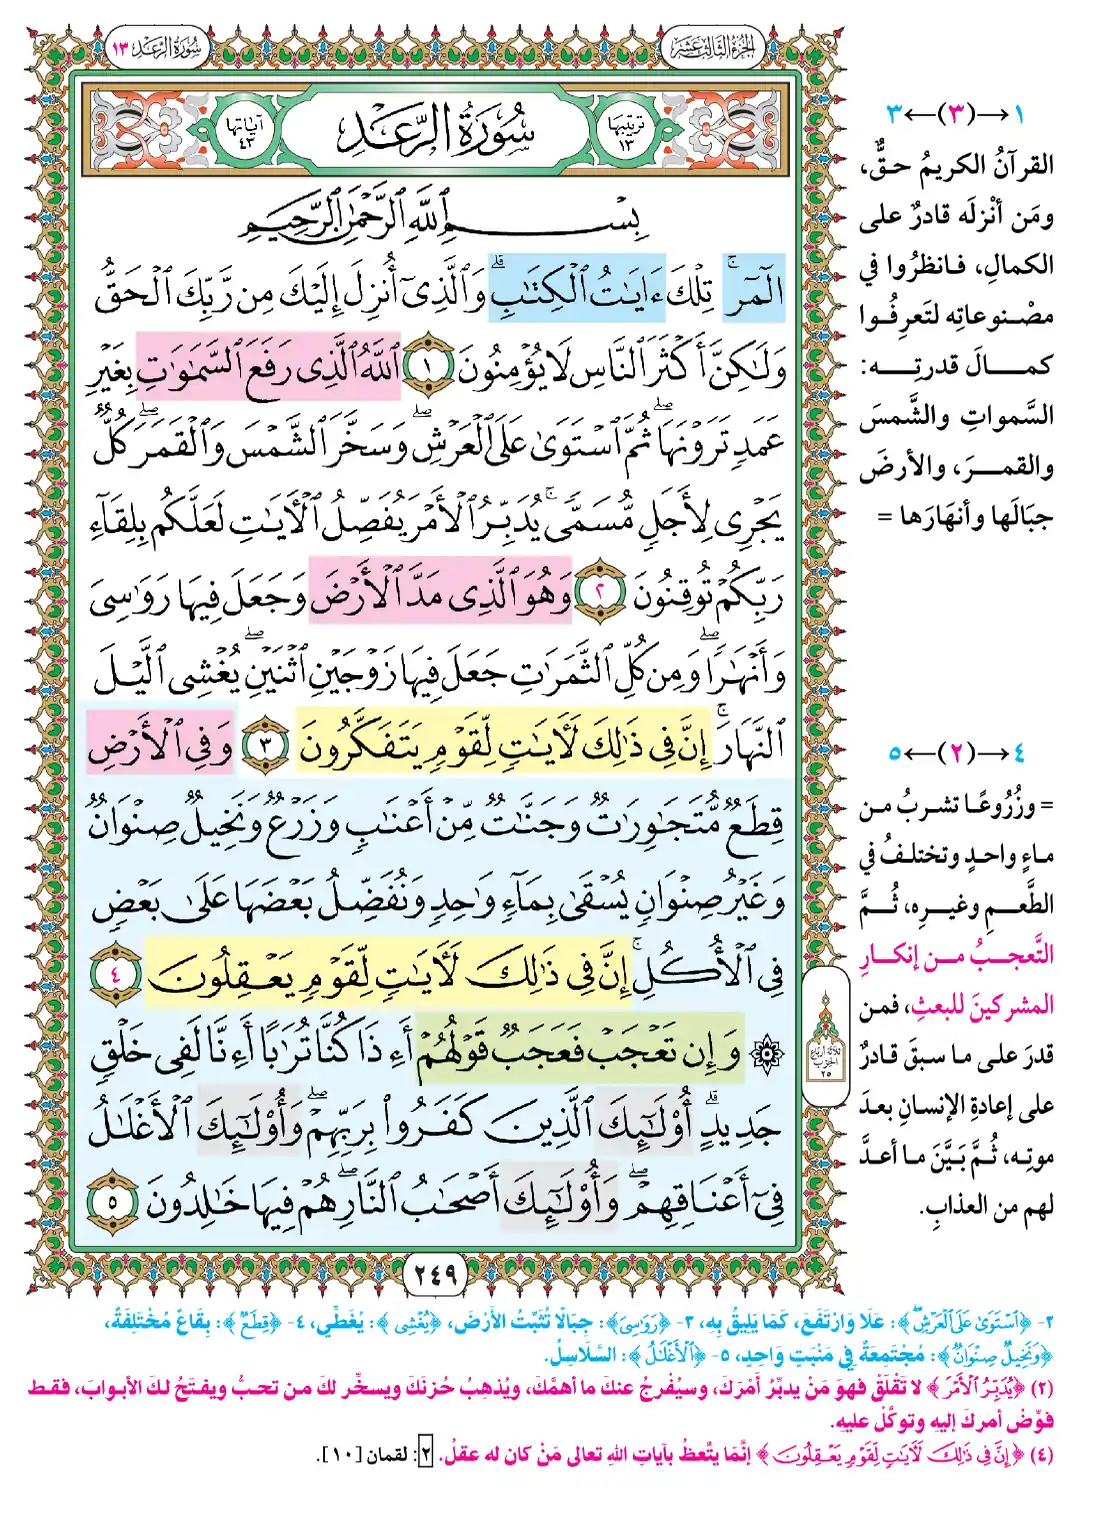 الجزء الثالث عشر
سورة الرعد ١٣
ترتيبها ١٣
سُورَةُ الرَّعْدِ
آياتها ٤٣
بِسْمِ ٱللَّهِ ٱلرَّحْمَٰنِ ٱلرَّحِيمِ
الٓمٓرۚ تِلْكَ ءَايَٰتُ ٱلْكِتَٰبِۗ وَٱلَّذِىٓ أُنزِلَ إِلَيْكَ مِن رَّبِّكَ ٱلْحَقُّ
وَلَٰكِنَّ أَكْثَرَ ٱلنَّاسِ لَا يُؤْمِنُونَ ١ ٱللَّهُ ٱلَّذِى رَفَعَ ٱلسَّمَٰوَٰتِ بِغَيْرِ
عَمَدٍ تَرَوْنَهَاۖ ثُمَّ ٱسْتَوَىٰ عَلَى ٱلْعَرْشِۖ وَسَخَّرَ ٱلشَّمْسَ وَٱلْقَمَرَۖ كُلٌّ
يَجْرِى لِأَجَلٍ مُّسَمًّىۚ يُدَبِّرُ ٱلْأَمْرَ يُفَصِّلُ ٱلْأَيَٰتِ لَعَلَّكُم بِلِقَآءِ
رَبِّكُمْ تُوقِنُونَ ٢ وَهُوَ ٱلَّذِى مَدَّ ٱلْأَرْضَ وَجَعَلَ فِيهَا رَوَٰسِىَ
وَأَنْهَٰرًاۖ وَمِن كُلِّ ٱلثَّمَرَٰتِ جَعَلَ فِيهَا زَوْجَيْنِ ٱثْنَيْنِۖ يُغْشِى ٱلَّيْلَ
ٱلنَّهَارَۚ إِنَّ فِى ذَٰلِكَ لَأَيَٰتٍ لِّقَوْمٍ يَتَفَكَّرُونَ ٣ وَفِى ٱلْأَرْضِ
قِطَعٌ مُّتَجَٰوِرَٰتٌ وَجَنَّٰتٌ مِّنْ أَعْنَٰبٍ وَزَرْعٌ وَنَخِيلٌ صِنْوَانٌ
وَغَيْرُ صِنْوَانٍ يُسْقَىٰ بِمَآءٍ وَٰحِدٍ وَنُفَضِّلُ بَعْضَهَا عَلَىٰ بَعْضٍ
فِى ٱلْأُكُلِۚ إِنَّ فِى ذَٰلِكَ لَأَيَٰتٍ لِّقَوْمٍ يَعْقِلُونَ ٤
۞ وَإِن تَعْجَبْ فَعَجَبٌ قَوْلُهُمْ أَءِذَا كُنَّا تُرَٰبًا أَءِنَّا لَفِى خَلْقٍ
جَدِيدٍۗ أُو۟لَٰٓئِكَ ٱلَّذِينَ كَفَرُوا۟ بِرَبِّهِمْۖ وَأُو۟لَٰٓئِكَ ٱلْأَغْلَٰلُ
فِىٓ أَعْنَاقِهِمْۖ وَأُو۟لَٰٓئِكَ أَصْحَٰبُ ٱلنَّارِۖ هُمْ فِيهَا خَٰلِدُونَ ٥
١→(٣)←٣
القرآنُ الكريمُ حقٌّ،
ومَن أنْزلَه قادرٌ على
الكمالِ، فانظرُوا في
مصْنوعاتِه لتَعرِفُوا
كمالَ قدرتِه:
السَّمواتِ والشَّمسَ
والقمرَ، والأرضَ
جبَالَها وأنهَارَها =
٤→(٢)←٥
= وزُرُوعًا تشربُ من
ماءٍ واحدٍ وتختلفُ في
الطَّعمِ وغيرِه، ثُمَّ
التَّعجبُ من إنكارِ
المشركينَ للبعثِ، فمن
قدرَ على ما سبقَ قادرٌ
على إعادةِ الإنسانِ بعدَ
موتِه، ثُمَّ بَيَّنَ ما أعدَّ
لهم من العذابِ.
ثلاثة أرباع الحزب ٢٥
٢٤٩
٢- ﴿ٱسْتَوَىٰ عَلَى ٱلْعَرْشِۖ﴾: عَلَا وَارْتَفَعَ، كَمَا يَلِيقُ بِهِ، ٣- ﴿رَوَٰسِىَ﴾: جِبَالًا تُثَبِّتُ الأَرْضَ، ﴿يُغْشِى﴾: يُغَطِّي، ٤- ﴿قِطَعٌ﴾: بِقَاعٌ مُخْتَلِفَةٌ،
﴿وَنَخِيلٌ صِنْوَانٌ﴾: مُجْتَمِعَةٌ فِي مَنْبَتٍ وَاحِدٍ، ٥- ﴿ٱلْأَغْلَٰلُ﴾: السَّلَاسِلُ.
(٢) ﴿يُدَبِّرُ ٱلْأَمْرَ﴾ لا تَقْلَقْ فهوَ مَنْ يدبِّرُ أَمْرَكَ، وسيُفْرجُ عنكَ ما أهمَّكَ، ويُذهِبُ حُزنَكَ ويسخِّر لكَ من تحبُّ ويفتَحُ لكَ الأبوابَ، فقط
فوِّضْ أمركَ إليهِ وتوكَّلْ عليهِ.
(٤) ﴿إِنَّ فِى ذَٰلِكَ لَأَيَٰتٍ لِّقَوْمٍ يَعْقِلُونَ﴾ إنَّمَا يتَّعظُ بآياتِ اللهِ تعالى مَنْ كان له عقلٌ. ٢: لقمان [١٠].